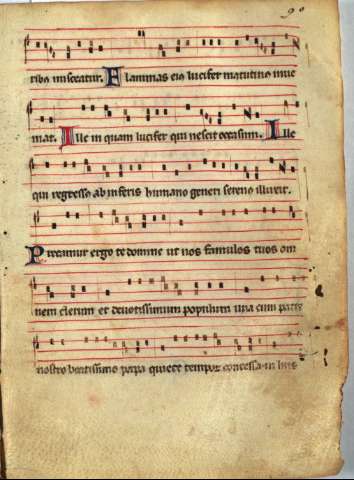 90
ribus misceatur. Flammas eius lucifer matutinus inue
niat. Ille in quam lucifer qui nescit occasum. Ille
qui regressus ab inferis humano generi serenus illuxit.
Precamur ergo te domine ut nos famulos tuos om
nem clerum et deuotissimum populum una cum patre
nostro beatissimo papa quiete temporum concessa in his